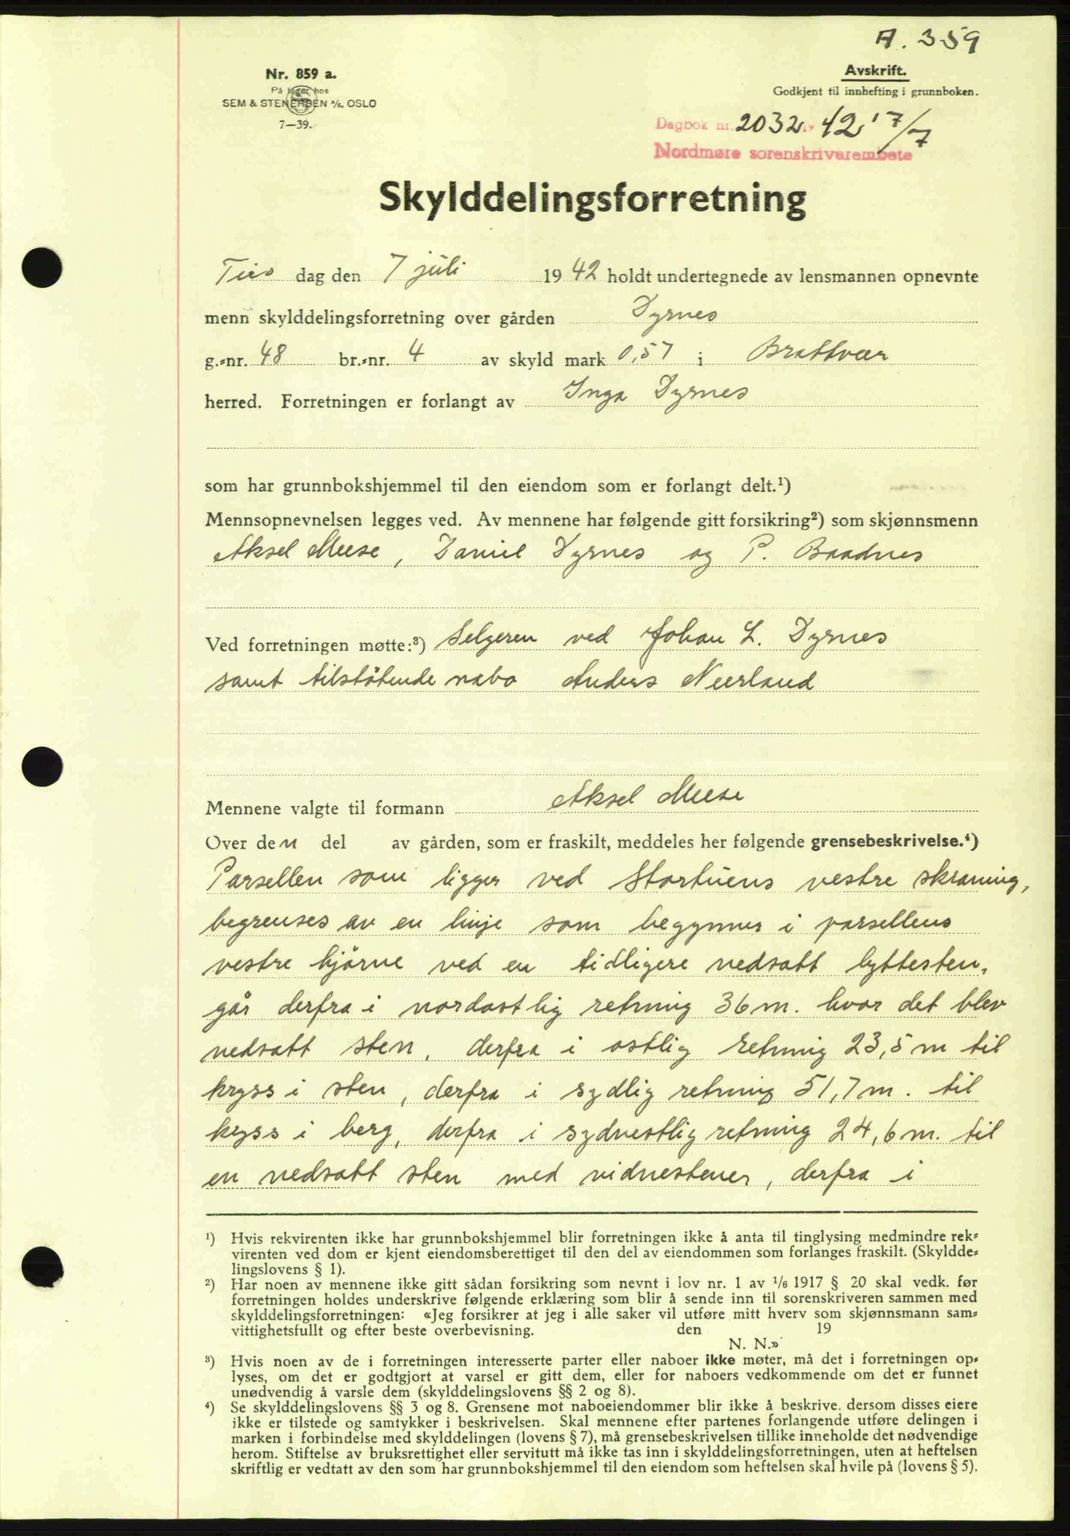 A. 359
Nr. 859 a.
På lager hos
SEM & STENERSEN A/S, OSLO
7—39.
Avskrift.
Godkjent til innhefting i grunnboken.
Dagbok nr. 2032 19 42 17/7
Nordmøre sorenskriverembete
Skylddelingsforretning
Tirs dag den 7 juli 19 42 holdt undertegnede av lensmannen opnevnte
menn skylddelingsforretning over gården Dyrnes
g.-nr. 48 br.-nr. 4 av skyld mark 0,57 i Brattvær
herred. Forretningen er forlangt av Inga Dyrnes
som har grunnbokshjemmel til den eiendom som er forlangt delt.¹)
Mennsopnevnelsen legges ved. Av mennene har følgende gitt forsikring²) som skjønnsmenn
Aksel Meese, Daniel Dyrnes og P. Baadnes
Ved forretningen møtte:³) Selgeren ved Johan L. Dyrnes
samt tilstøtende nabo Anders Neerland
Mennene valgte til formann Aksel Meese
Over den del av gården, som er fraskilt, meddeles her følgende grensebeskrivelse.⁴)
Parsellen som ligger ved Stortuens vestre skraning,
begrenses av en linje som begynner i parsellens
vestre hjørne ved en tidligere nedsatt byttesten,
går derfra i nordøstlig retning 36 m. hvor det blev
nedsatt sten, derfra i østlig retning 23,5 m til
kryss i sten, derfra i sydlig retning 51,7 m. til
kryss i berg, derfra i sydvestlig retning 24,6 m. til
en nedsatt sten med vidnestener, derfra i
¹) Hvis rekvirenten ikke har grunnbokshjemmel blir forretningen ikke å anta til tinglysing medmindre rek-
virenten ved dom er kjent eiendomsberettiget til den del av eiendommen som forlanges fraskilt. (Skyldde-
lingslovens § 1).
²) Har noen av mennene ikke gitt sådan forsikring som nevnt i lov nr. 1 av 1/6 1917 § 20 skal vedk. før
forretningen holdes underskrive følgende erklæring som blir å sende inn til sorenskriveren sammen med
skylddelingsforretningen: «Jeg forsikrer at jeg i alle saker vil utføre mitt hverv som skjønnsmann sam-
vittighetsfullt og efter beste overbevisning. den 19
N. N.»
³) Hvis noen av de i forretningen interesserte parter eller naboer ikke møter, må det i forretningen op-
lyses, om det er godtgjort at varsel er gitt dem, eller for naboers vedkommende om det er funnet
unødvendig å varsle dem (skylddelingslovens §§ 2 og 8).
⁴) Se skylddelingslovens §§ 3 og 8. Grensene mot naboeiendommer blir ikke å beskrive, dersom disses eiere
ikke er tilstede og samtykker i beskrivelsen. Skal mennene efter partenes forlangende utføre delingen i
marken i forbindelse med skylddelingen (lovens § 7), må grensebeskrivelsen tillike inneholde det nødvendige
herom. Stiftelse av bruksrettighet eller servitutt må ikke tas inn i skylddelingsforretningen, uten at heftelsen
skriftlig er vedtatt av den som har grunnbokshjemmel til den eiendom som heftelsen skal hvile på (lovens § 5).